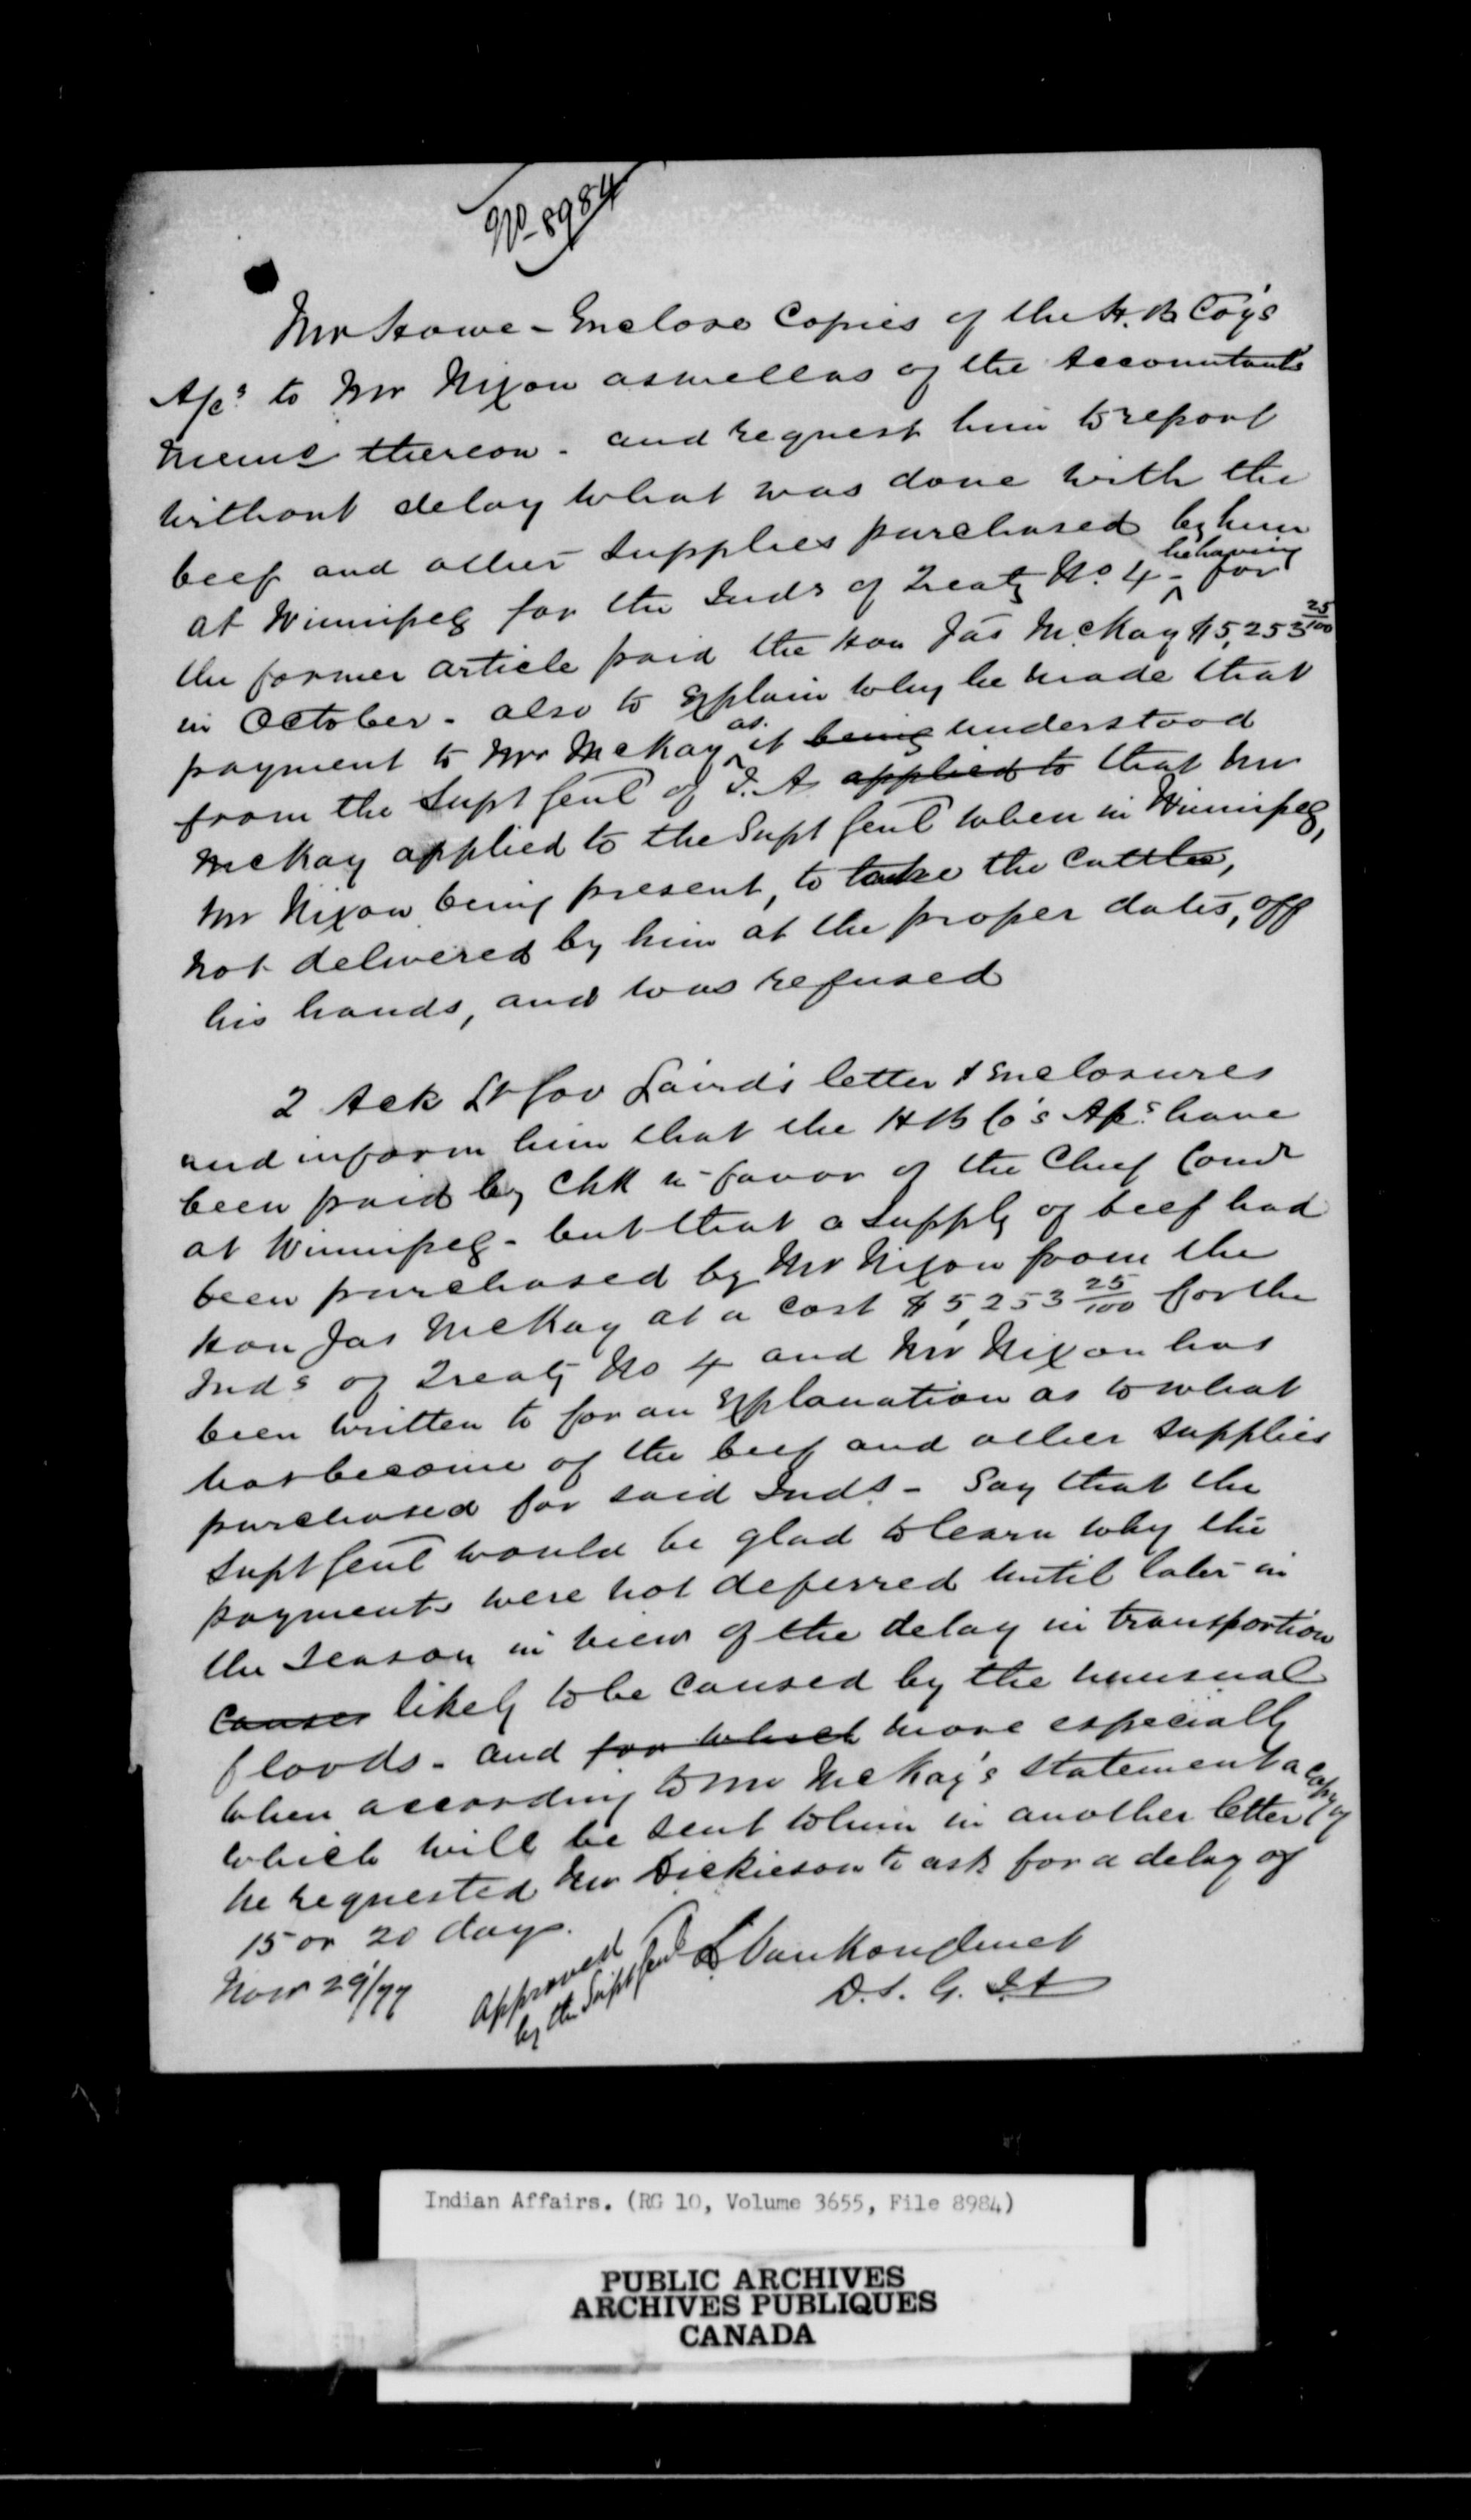 No 8984
Mr Howe - Enclose Copies of the H. B Coy's
A/cs to Mr Nixon aswellas of the Accountants
memo thereon - and request him to report
without delay what was done with the
beef and other supplies purchased by him
at Winnipeg for the Inds of Treaty No 4 - he having for
the former article paid the Hon Jas McKay $5,253 25/100
in October - also to explain why he made that
payment to Mr McKay as it being understood
from the Supt Genl of I. A. applied to that Mr
McKay applied to the Supt Genl when in Winnipeg,
Mr Nixon being present, to take the cattle,
not delivered by him at the proper dates, off
his hands, and was refused
2 Ack Lt Gov Laird's letter & Enclosures
and inform him that the H B Co's A/cs have
been paid by Chk in favor of the Chief Comr
at Winnipeg - but that a supply of beef had
been purchased by Mr Nixon from the
Hon Jas McKay at a cost $5,253 25/100 for the
Inds of Treaty No 4 and Mr Nixon has
been written to for an explanation as to what
has become of the beef and other supplies
purchased for said Inds - Say that the
Supt Genl would be glad to learn why the
payments were not deferred until later in
the season in view of the delay in transportion
causes likely to be caused by the unusual
floods - and for which more especially
when according to Mr McKay's statement a copy of
which will be sent to him in another letter
he requested Mr Dickieson to ask for a delay of
15 or 20 days.
Nov 29/77
Approved
by the Supt Genl
L Vankoughnet
D. S. G. I A
Indian Affairs. (RG 10, Volume 3655, File 8984)
PUBLIC ARCHIVES
ARCHIVES PUBLIQUES
CANADA